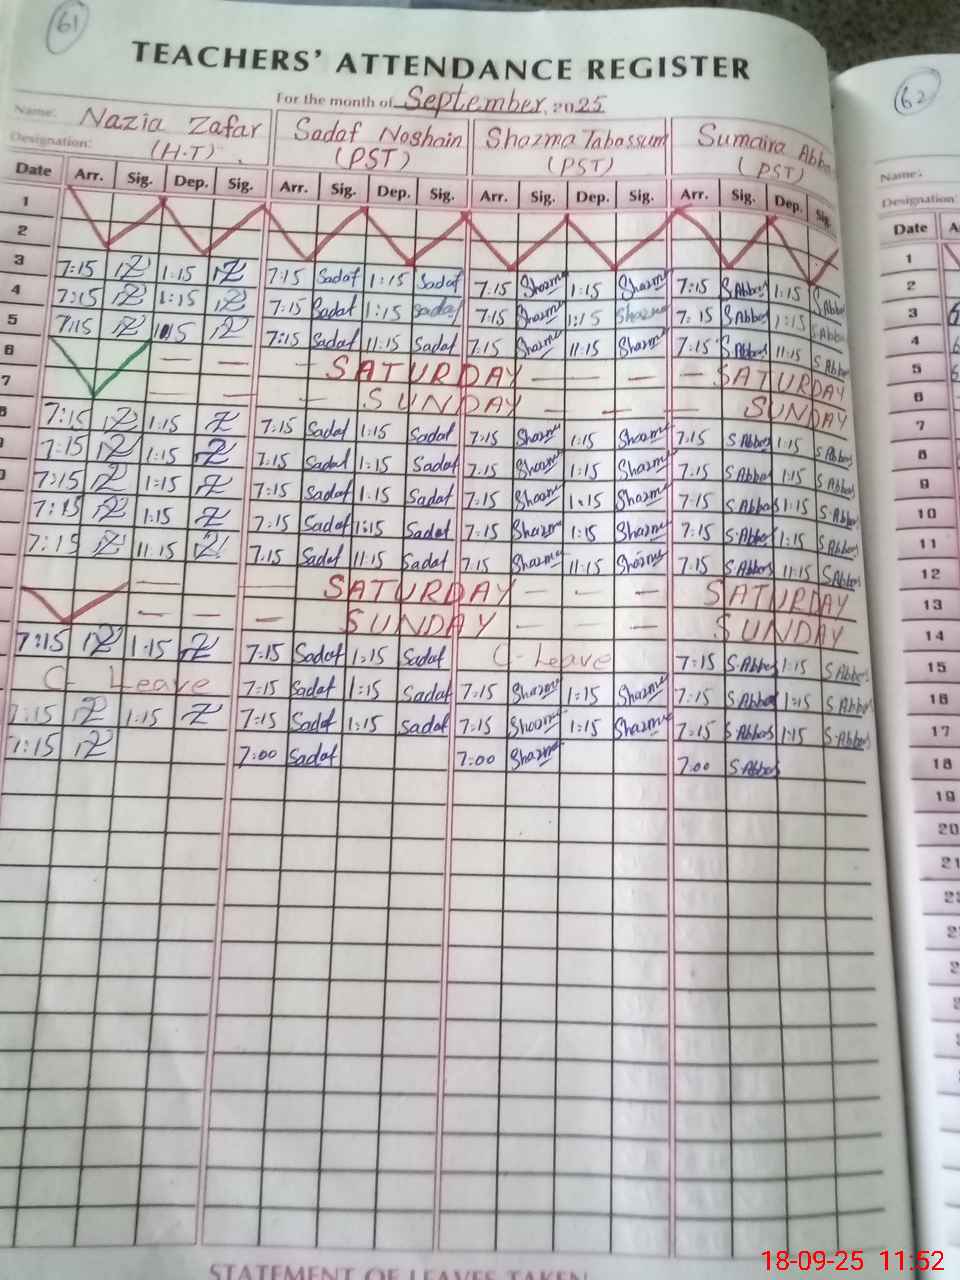 61
TEACHERS' ATTENDANCE REGISTER
For the month of September, 2025
Name: Nazia Zafar Sadaf Noshain Shazma Tabassum Sumaira
Designation: (H.T) (PST) (PST) (PST)
Date Arr. Sig. Dep. Sig. Arr. Sig. Dep. Sig. Arr. Sig. Dep. Sig. Arr. Sig. Dep. Sig.
1
2
3 7:15 1:15 7:15 Sadaf 1:15 Sadaf 7:15 Shazma 1:15 Shazma 7:15 S.Abbas 1:15 S.Abbas
4 7:15 1:15 7:15 Sadaf 1:15 Sadaf 7:15 Shazma 1:15 Shazma 7:15 S.Abbas 1:15 S.Abbas
5 7:15 7:15 Sadaf 11:15 Sadaf 7:15 Shazma 11:15 Shazma 7:15 S.Abbas 11:15 S.Abbas
6 — — — SATURDAY — — — — SATURDAY
7 — — — SUNDAY — — — SUNDAY
7:15 1:15 7:15 Sadaf 1:15 Sadaf 7:15 Shazma 1:15 Shazma 7:15 S.Abbas 1:15 S.Abbas
7:15 1:15 7:15 Sadaf 1:15 Sadaf 7:15 Shazma 1:15 Shazma 7:15 S.Abbas 1:15 S.Abbas
7:15 1:15 7:15 Sadaf 1:15 Sadaf 7:15 Shazma 1:15 Shazma 7:15 S.Abbas 1:15 S.Abbas
7:15 1:15 7:15 Sadaf 1:15 Sadaf 7:15 Shazma 1:15 Shazma 7:15 S.Abbas 1:15 S.Abbas
7:15 11:15 7:15 Sadaf 11:15 Sadaf 7:15 Shazma 11:15 Shazma 7:15 S.Abbas 11:15 S.Abbas
— — SATURDAY — — — SATURDAY
— — — SUNDAY — — — SUNDAY
7:15 1:15 7:15 Sadaf 1:15 Sadaf C-Leave 7:15 S.Abbas 1:15 S.Abbas
C- Leave 7:15 Sadaf 1:15 Sadaf 7:15 Shazma 1:15 Shazma 7:15 S.Abbas 1:15 S.Abbas
7:15 1:15 7:15 Sadaf 1:15 Sadaf 7:15 Shazma 1:15 Shazma 7:15 S.Abbas 1:15 S.Abbas
7:15 7:00 Sadaf 7:00 Shazma 7:00 S.Abbas
STATEMENT OF LEAVES TAKEN
62
Name:
Designation:
Date
1
2
3
4
5
6
7
8
9
10
11
12
13
14
15
16
17
18
19
20
18-09-25 11:52